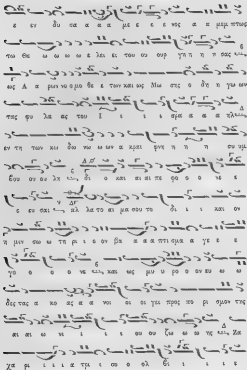 ε εν δυ σα α α α με ε ε ε νος α α μεμπτως
τω Θε ω ω ω ω ε λει ει του ου ουρ γη η η σας
ως Α α ρων νο μο θε ε των και ως Μω σης ο δη γων
τας φυ λα ας του Ι ι ι σρα α α α ηλ
εν τη των κω δω νω ων α κραι φνη η η η συ υμ
βου ου ου λη δι ι ο και αι αι τε ρο ο ο νε ε
ε ευ σαι αλ λα το αι μα σου το δι ι και ον
η μιν σω τη ρι ι ο ον βα α α α πτι σμα α γε ε ε
γο ο ο ο νε και ως μυ υ ρο ο ον ευ ω ω
δες τας α κο ας α α νοι οι οι γει προς το ρι σμον της
αι αι ω νι ι ι ι ου ου ζω ω ω ης Ζα
χα ρι ι ι ι α τρι ι σο ο ολ βι ι ι ι ε